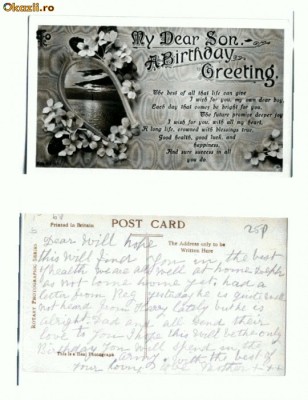 Okazii.ro
My Dear Son.
A Birthday
Greeting.
The best of all that life can give
I wish for you, my own dear boy,
Each day that comes be bright for you.
The future promise deeper joy
I wish for you, with all my heart,
A long life, crowned with blessings true,
Good health, good luck, and
happiness,
And sure success in all
you do.
Printed in Britain
POST CARD
25p
The Address only to be
Written Here
ROTARY PHOTOGRAPHIC SERIES
This is a Real Photograph
Dear Will hope
this will find you in the best
of health we are all well at home
as not come home yet had a
letter from Reg yesterday he is quite well
not heard from Harry lately but he is
alright Dad and all send their
love to you I hope this will be the only
Birthday you will spend in the
army with the best of
your loving Mother